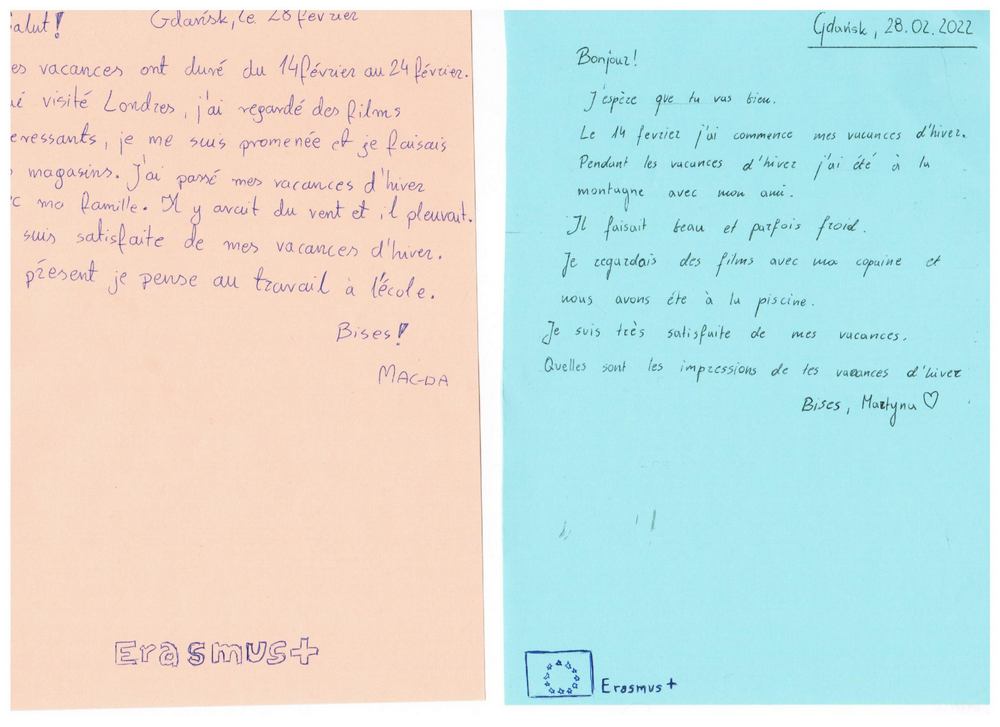 alut!
Gdańsk, le 28 fevrier
es vacances ont duré du 14 février au 24 février.
é visité Londres, j'ai regardé des films
eressants, je me suis promenée et je faisais
magasins. J'ai passé mes vacances d'hiver
c ma famille. Il y avait du vent et il pleuvait.
suis satisfaite de mes vacances d'hiver.
présent je pense au travail à l'école.
Bises!
MAGDA
Erasmus+
Gdańsk, 28.02.2022
Bonjour!
J'espère que tu vas bien.
Le 14 fevrier j'ai commence mes vacances d'hiver.
Pendant les vacances d'hiver j'ai été à la
montagne avec mon ami.
Il faisait beau et parfois froid.
Je regardais des films avec ma copaine et
nous avons éte à la piscine.
Je suis très satisfaite de mes vacances.
Quelles sont les impressions de tes vacances d'hiver
Bises, Martyna ♡
Erasmus+